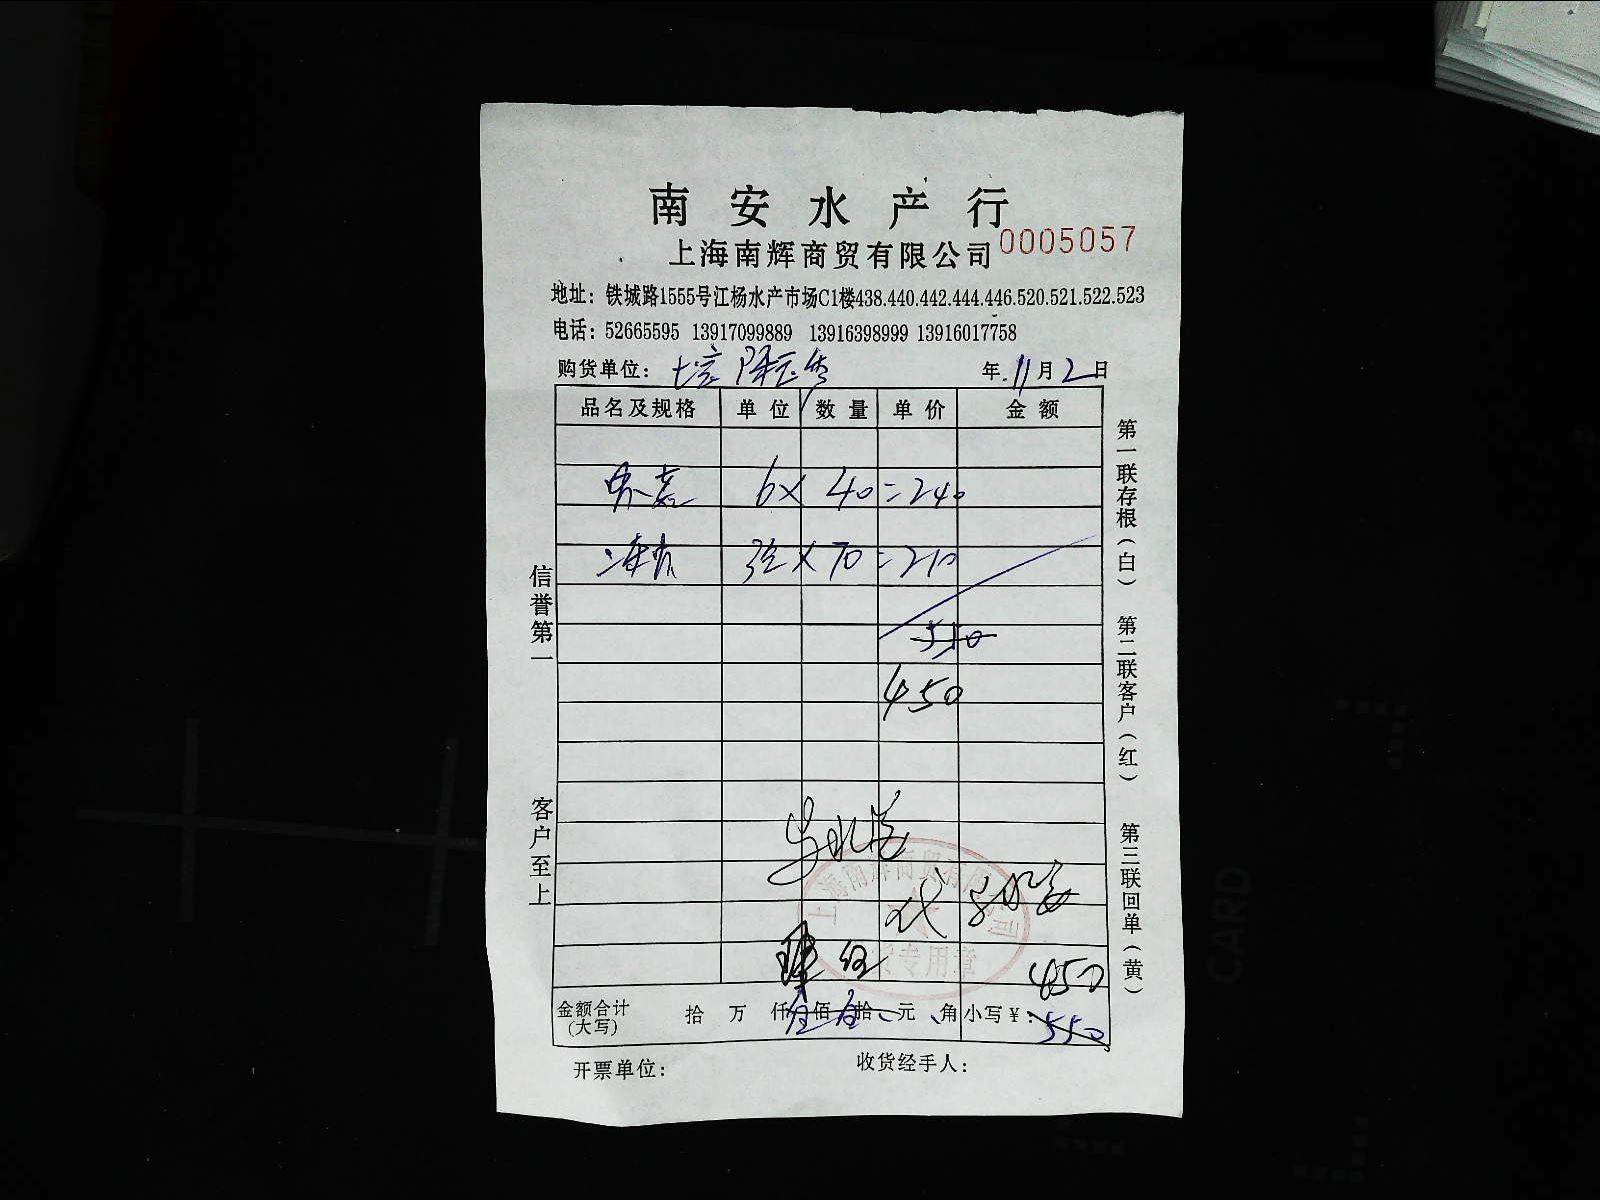 南安水产行
上海南辉商贸有限公司 0005057
地址：铁城路1555号江杨水产市场C1楼438.440.442.444.446.520.521.522.523
电话：52665595 13917099889 13916398999 13916017758
购货单位： 年.11月2日
品名及规格 单位 数量 单价 金额
6× 40=240
× 70=210
550
450
代
上海南辉商贸有限公司
专用章
450
金额合计(大写) 拾 万 仟 佰 拾 元 角 小写￥：550
开票单位： 收货经手人：
信誉第一
客户至上
第一联存根(白)
第二联客户(红)
第三联回单(黄)
CARD